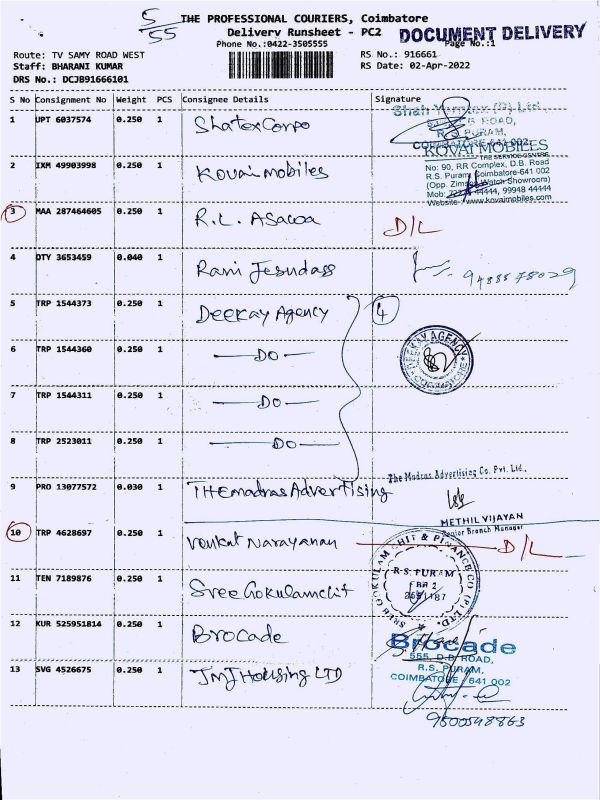 5/55
THE PROFESSIONAL COURIERS, Coimbatore
Delivery Runsheet - PC2
DOCUMENT DELIVERY
Phone No.:0422-3505555
Page No.:1
Route: TV SAMY ROAD WEST
RS No.: 916661
Staff: BHARANI KUMAR
RS Date: 02-Apr-2022
DRS No.: DCJB91666101
S No Consignment No Weight PCS Consignee Details Signature
1 UPT 6037574 0.250 1 Shatex Corpo
D.B ROAD,
R.S. PURAM,
COIMBATORE 641 002
KOVAI MOBILES
THE SERVICE CENTRE
2 IXM 49903998 0.250 1 Kovai mobiles
No: 90, RR Complex, D.B. Road
R.S. Puram, Coimbatore-641 002
(Opp. Zimson Watch Showroom)
44444, 99948 44444
Website : www.kovaimobiles.com
3 MAA 287464605 0.250 1 R.L. D/L
4 DTY 3653459 0.040 1 Rani Jesudass
5 TRP 1544373 0.250 1 Deekay Agency 4
DEEKAY AGENCY
COIMBATORE
6 TRP 1544360 0.250 1 —DO—
7 TRP 1544311 0.250 1 —DO—
8 TRP 2523011 0.250 1 —DO—
The Madras Advertising Co. Pvt. Ltd.,
9 PRO 13077572 0.030 1 THE madras Advertising
METHIL VIJAYAN
Senior Branch Manager
10 TRP 4628697 0.250 1 Venkat Narayanan D/L
SREE GOKULAM CHIT & FINANCE CO (P) LTD.
R.S. PURAM
11 TEN 7189876 0.250 1 Sree Gokulamchit
12 KUR 525951814 0.250 1 Brocade
Brocade
555, D.B. ROAD,
R.S. PURAM,
COIMBATORE - 641 002
13 SVG 4526675 0.250 1 JMJ Housing LTD
9600548863